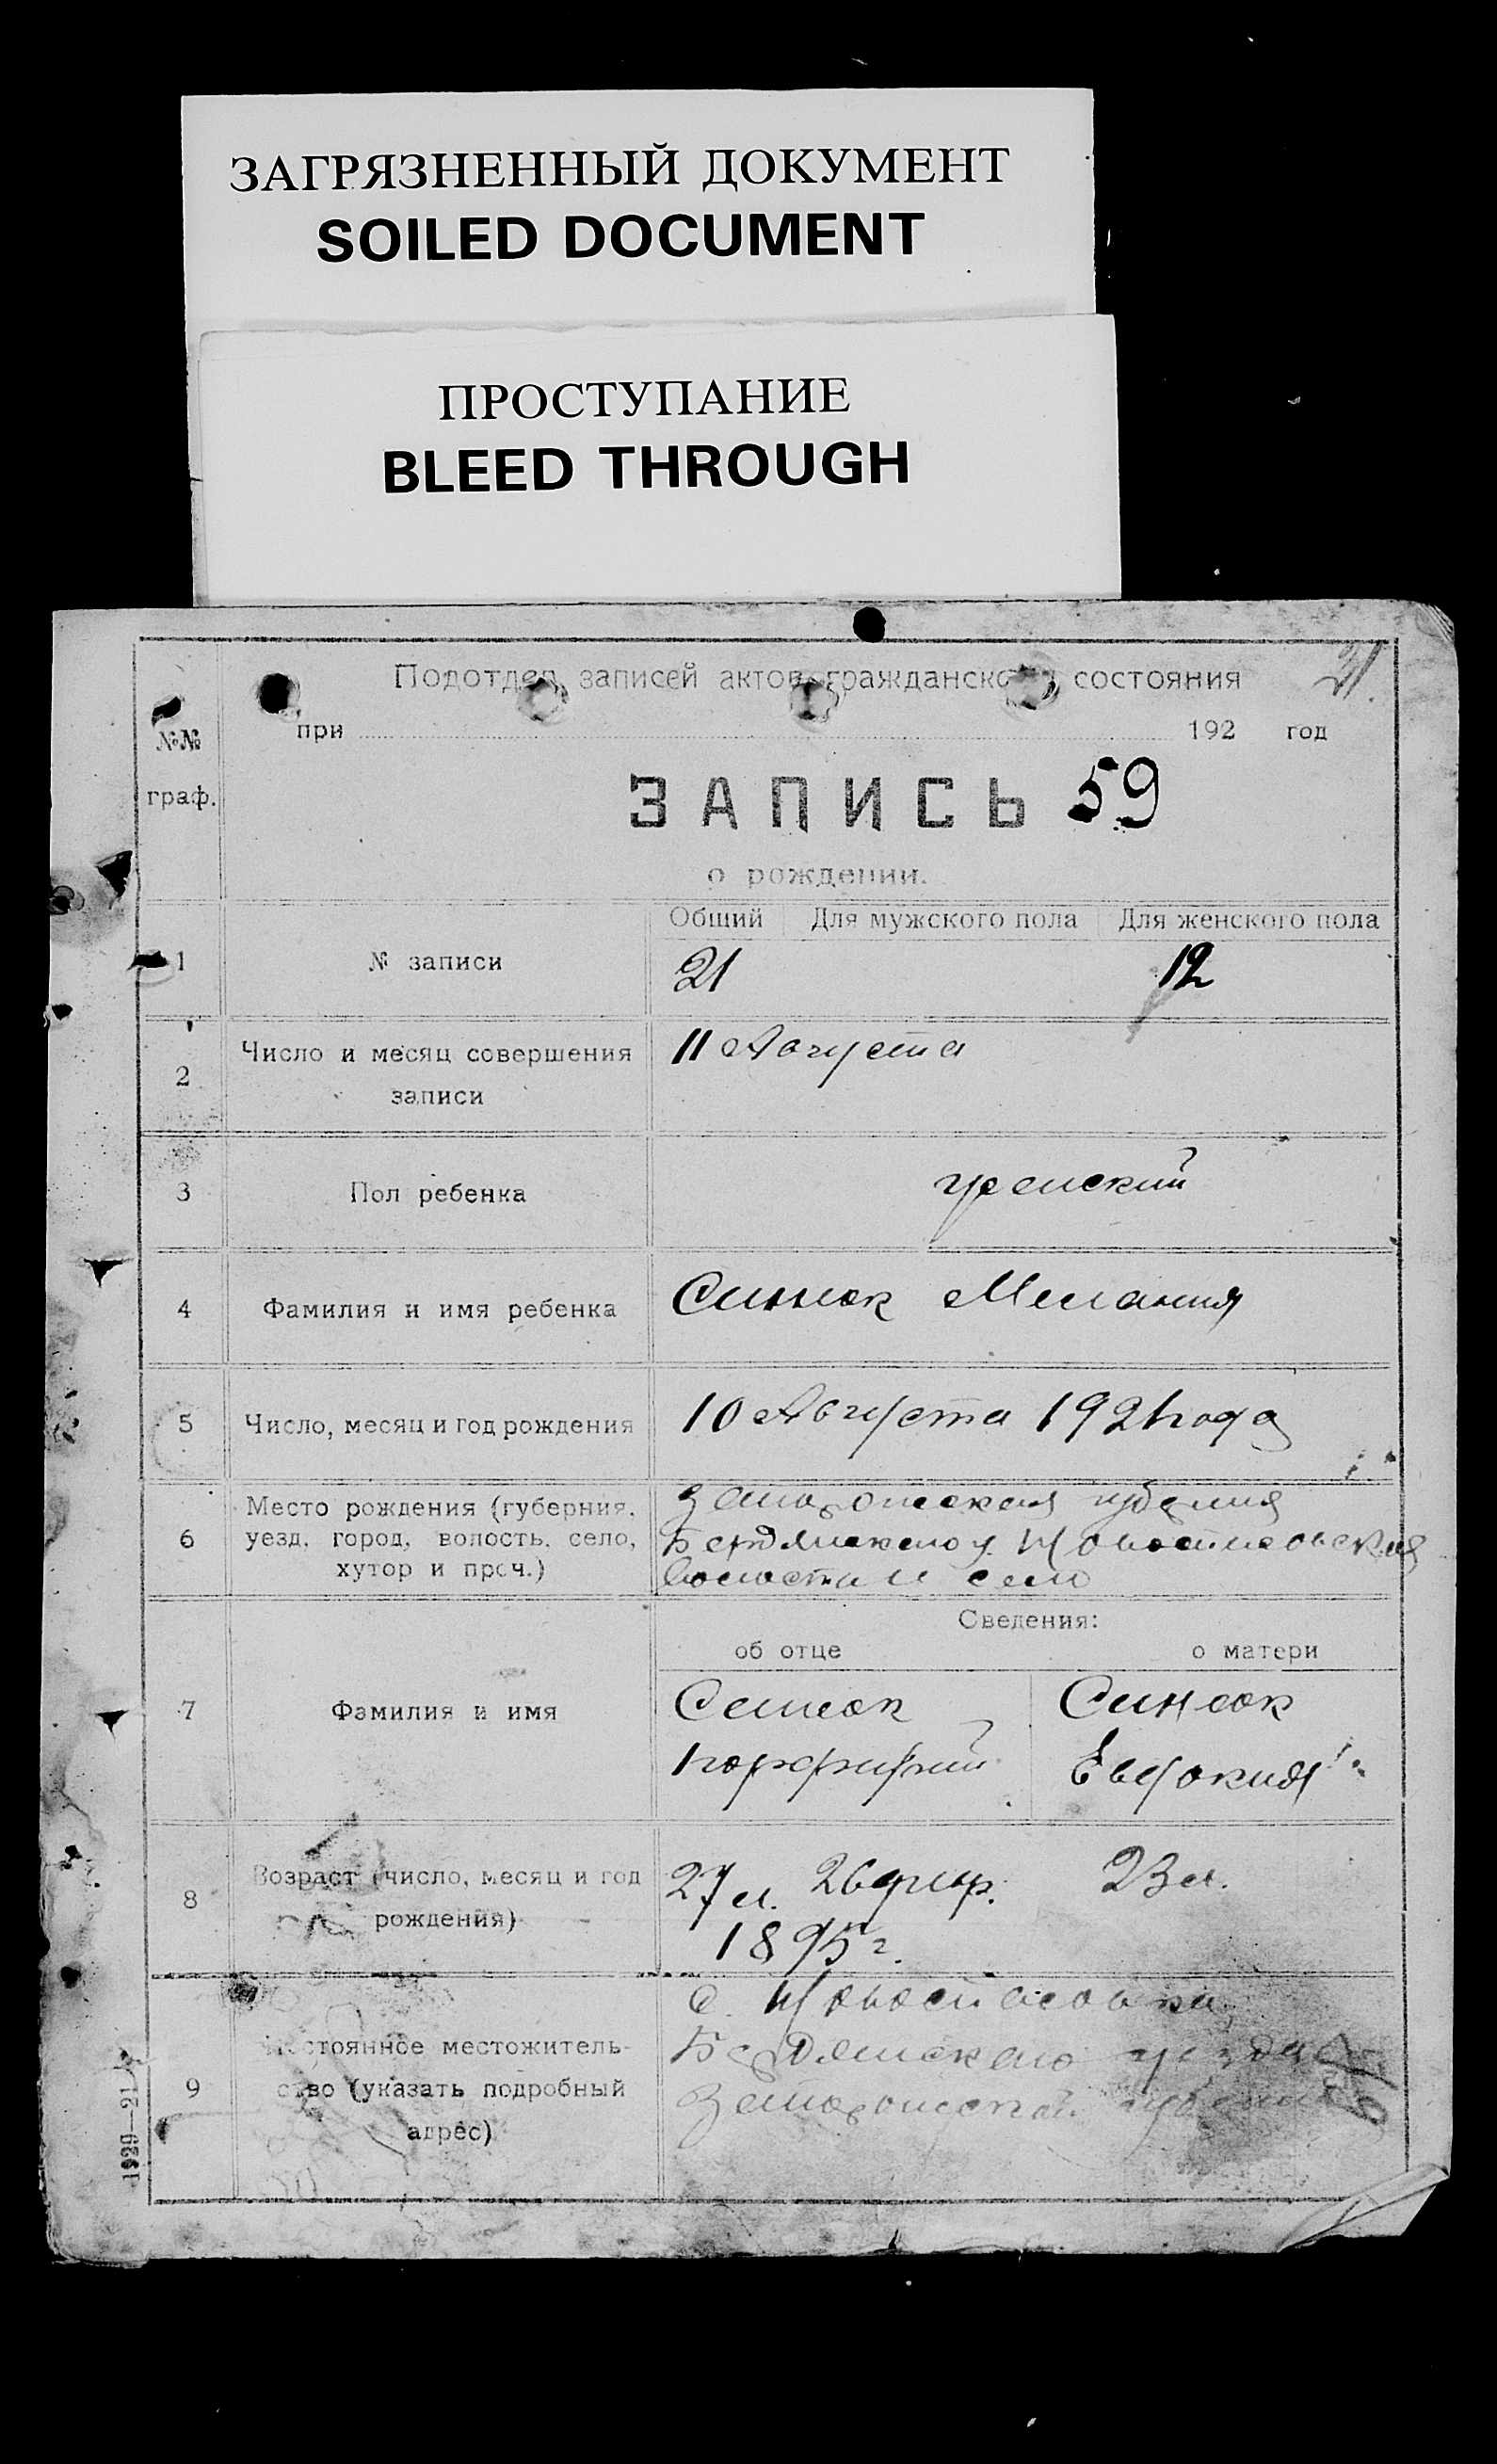 ЗАГРЯЗНЕННЫЙ ДОКУМЕНТ
SOILED DOCUMENT
ПРОСТУПАНИЕ
BLEED THROUGH
21.
Подотдел записей актов гражданского состояния
при 192 год
№№
граф.
ЗАПИСЬ 59
о рождении.
Общий Для мужского пола Для женского пола
1 № записи 21 12
2 Число и месяц совершения 11 Августа
записи
3 Пол ребенка женский
4 Фамилия и имя ребенка Синюк Мелания
5 Число, месяц и год рождения 10 Августа 1921 года
6 Место рождения (губерния, Запорожская губерния
уезд, город, волость, село, Бердянского у. Новоспасовская
хутор и проч.) волость и село
Сведения:
об отце о матери
7 Фамилия и имя Синюк Синюк
Порфирий Евдокия
8 Возраст (число, месяц и год 27 л. 26 23 л.
рождения) 1895 г.
9 Постоянное местожитель- с. Новоспасовка,
ство (указать подробный Бердянского уезда
адрес) Запорожской губернии
1920—21